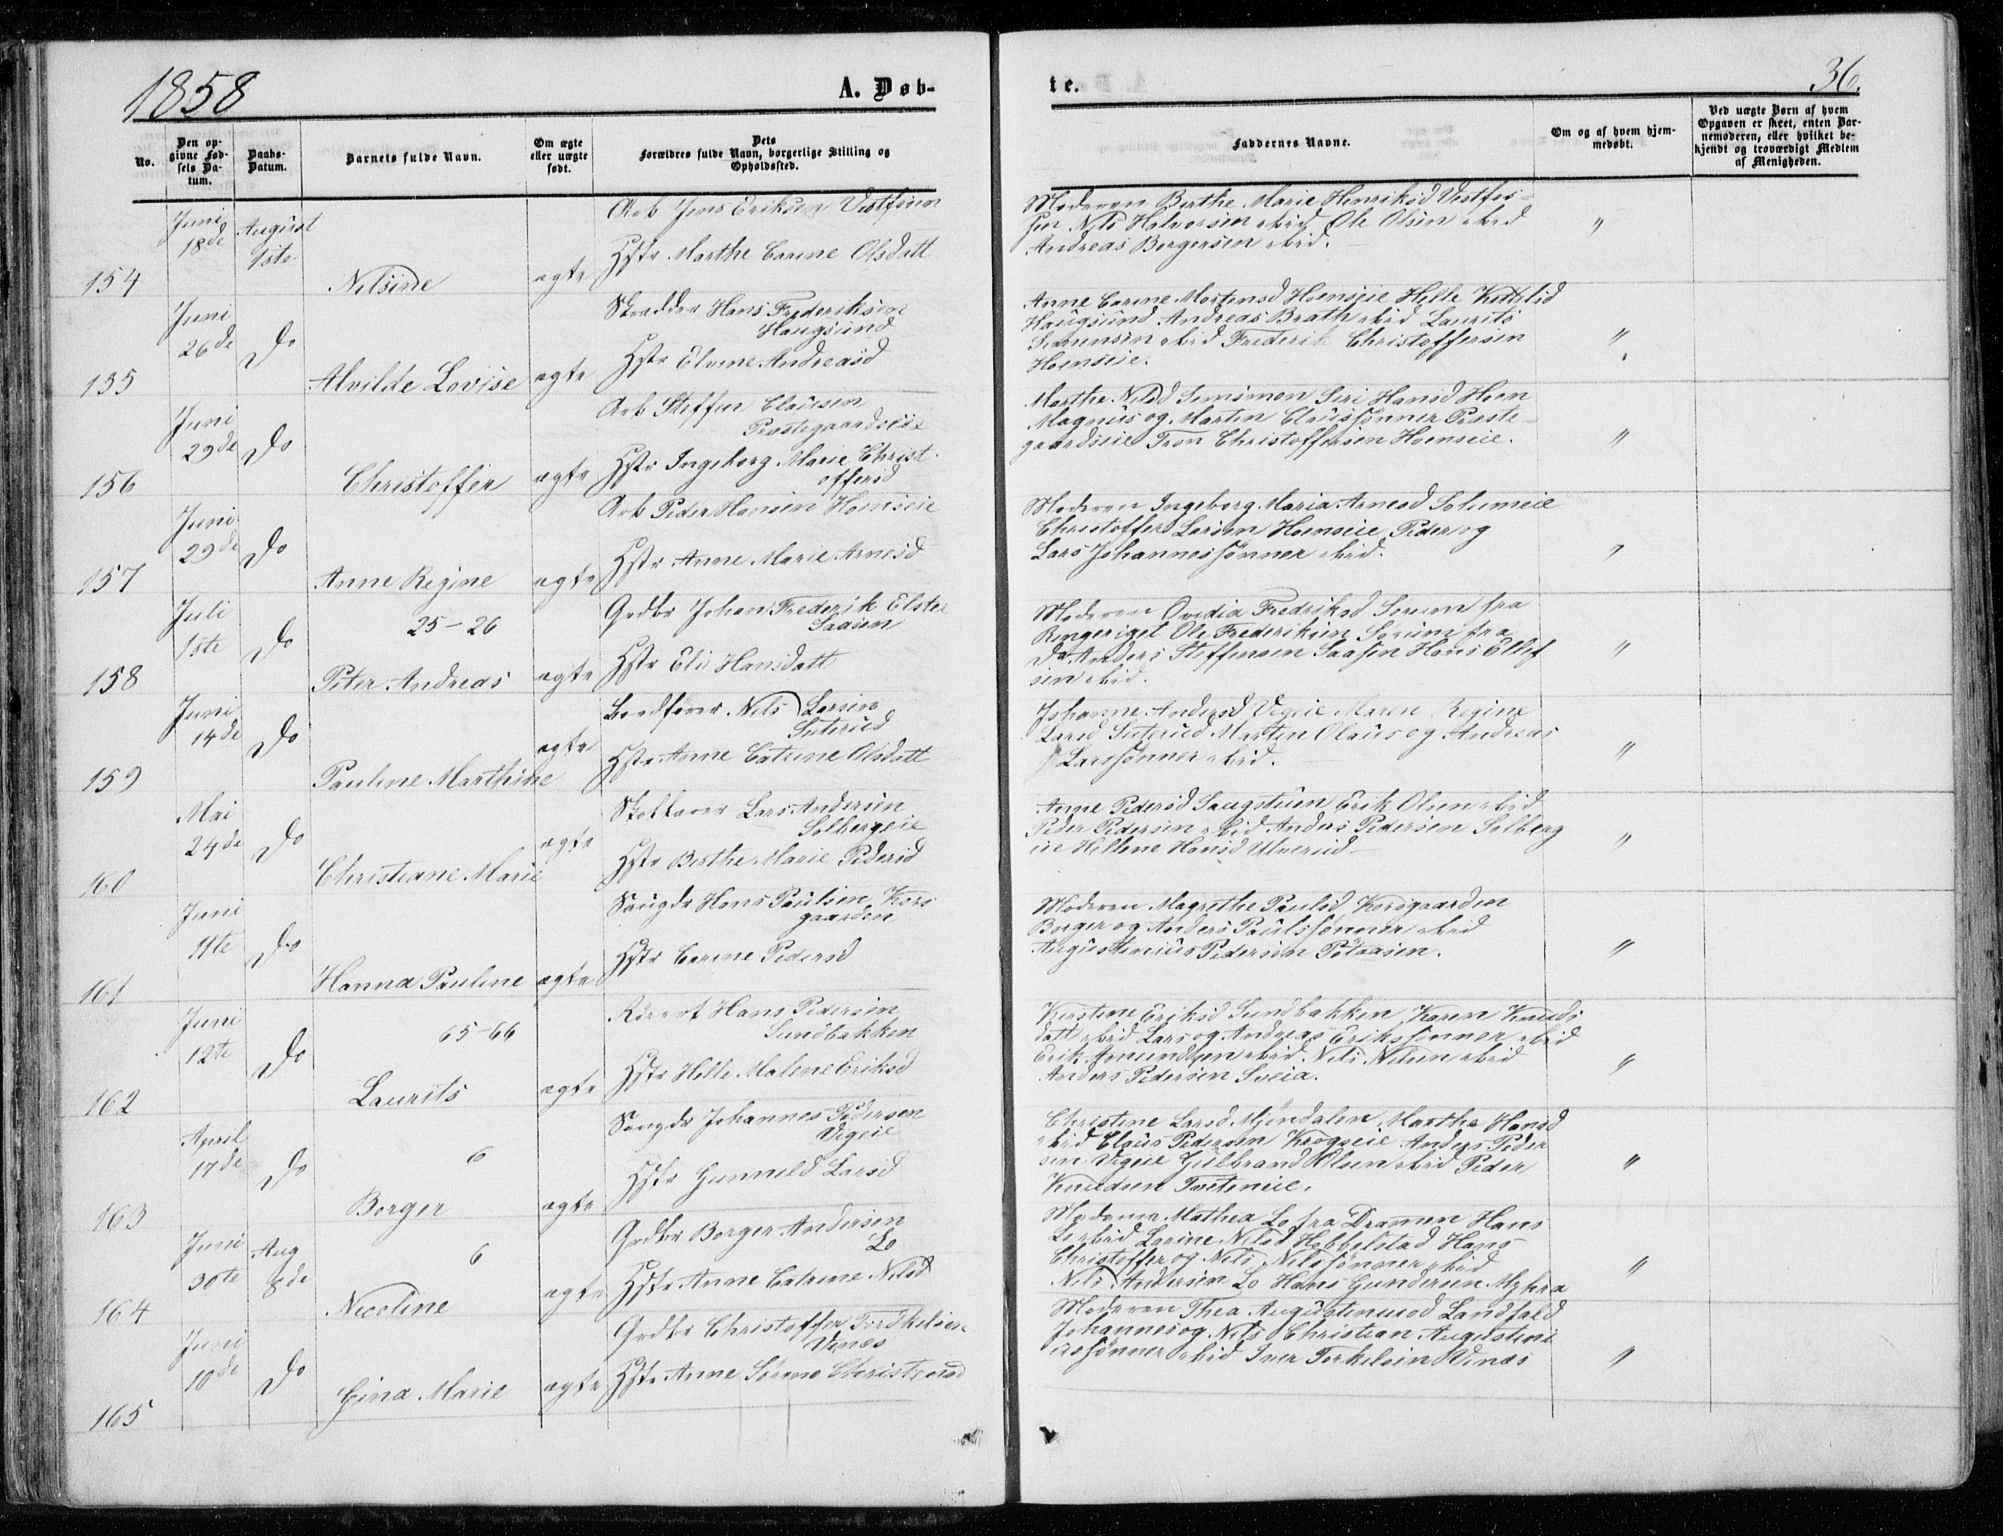 1858
A. Døb-
te.
36.
No.
Den op-
givne Fød-
sels Da-
tum.
Daabs-
Datum.
Barnets fulde Navn.
Om ægte
eller uægte
født.
Dets
Forældres fulde Navn, borgerlige Stilling og
Opholdssted.
Faddernes Navne.
Om og af hvem hjem-
medøbt.
Ved uægte Børn af hvem
Opgaven er skeet, enten Bar-
nemoderen, eller hvilket be-
kjendt og troværdigt Medlem
af Menigheden.
154
Juni
18de
August
1ste
Nilsine
ægte
Arb Jens Eriksen Vestfosen
Hstr Marthe Carine Olsdatt
Moderen Berthe Marie Henriksd Vestfos-
sen Nils Halvorsen ibid Ole Olsen ibid
Andreas Borgersen ibid.
"
155
Juni
26de
Do
Alvilde Lovise
ægte
Skrædder Hans Frederiksen
Haugsund
Hstr Elvine Andreasd
Anne Carine Mortensd Hoenseie Helle Kittilsd
Haugsund Andreas Brath ibid Laurits
Simensen ibid Frederik Christoffersen
Hoenseie.
"
156
Juni
29de
Do
Christoffer
ægte
Arb Steffen Clausen
Prestegaardseie
Hstr Ingeborg Marie Christ-
offersd
Marthe Nilsd Siri Hansd Hoen
Magnus og Martin Claussønner Preste-
gaardseie Tron Christoffersen Hoenseie.
"
157
Juni
29de
Do
Anne Regine
ægte
Arb Peder Hansen Hoenseie
Hstr Anne Marie Arnesd
Moderen Ingeborg Maria Arnesd
Christoffer Larsen Hoenseie Peder og
Lars Johannessønner ibid.
"
158
Juli
1ste
Do
25-26
Peter Andreas
ægte
Grdbr Johan Frederik
Saasen
Hstr Elie Hansdatt
Moderen Ovidia Fredriksd Sørum fra
Ringeriget Ole Frederiksen Sørum fra
Do Anders Steffensen Saasen Hans Ellef
sen ibid.
"
159
Juni
14de
Do
Pauline Marthine
ægte
Bordfører Nils Larsen
Suterud
Hstr Anne Catrine Olsdatt
Johanne Andersd Vegeie Maren Regine
Larsd Suterud Morten Olaus og Andreas
Larssønner ibid.
"
160
Mai
24de
Do
Christiane Marie
ægte
Lars Andersen
Solbergeie
Hstr Berthe Marie Pedersd
Anne Pedersd Saugstuen Erik Olsen ibid
Peder Pedersen ibid Anders Pedersen Solberg
eie Hellene Hansd Ulverud
"
161
Juni
11te
Do
Hanna Pauline
ægte
Saugdr Hans Paulsen Kors
gaarden
Hstr Carine Pedersd
Moderen Magrethe Paulsd Korsgaarden
Borger og Anders Paulssønner ibid
Augustinius Pedersen
"
162
Juni
12te
Do
65-66
Laurits
ægte
Hans Pedersen
Sundbakken
Hstr Helle Malene Eriksd
Kirstine Eriksd Sundbakken Karen Knuds
datt ibid Lars og Andreas Erikssønner ibid
Erik Amundsen ibid. Nils Nilsen ibid
Anders Pedersen Sveia.
"
163
April
17de
Do
6
Borger
ægte
Saugdr Johannes Pedersen
Vegeie
Hstr Gunnild Larsd
Christine Larsd Mjøndalen Marthe Hansd
ibid Claus Pedersen Krogseie Anders Peder
sen Vegeie Gulbrand Olsen ibid Peder
Knudsen
"
164
Juni
30te
Aug
8de
6
Nicoline
ægte
Grdbr Borger Andersen
Lo
Hstr Anne Catrine Nilsd
Moderen Mathea Lo fra Dramen Hans
Lo ibid Larine Nilsd Hobbelstad Hans
Christoffer og Nils Nilssønner ibid
Nils Andersen Lo Hans Gundersen Myhra
"
165
Juni
10de
Do
Gina Marie
ægte
Grdbr Christoffer Torkelsen
Vinæs
Hstr Anne Sørine
Moderen Thea Augustinusd Landfald
Johannes og Nils Christian Augustini
ussønner ibid Iver Torkelsen Vinæs
"